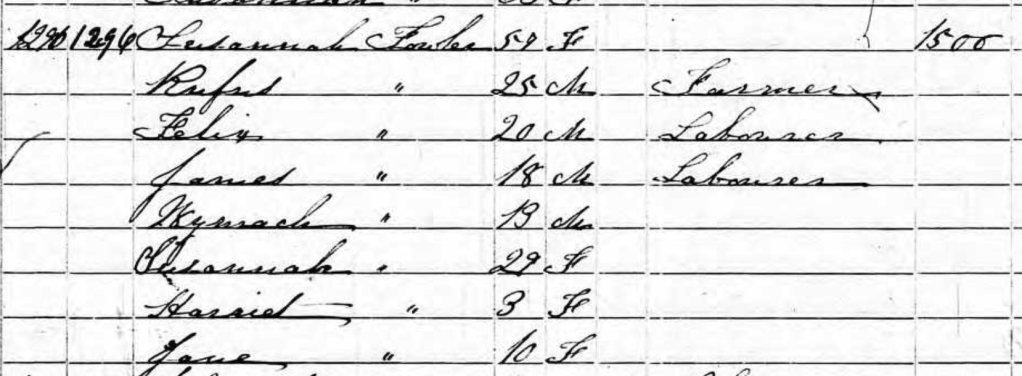 1290 1296 Susannah Fowler 59 F 1500
Rufus " 25 M Farmer
Felix " 20 M Labourer
James " 18 M Labourer
" 13 M
Susannah " 29 F
Harriet " 3 F
Jane " 10 F